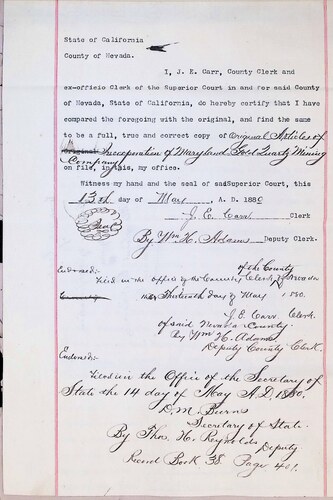 State of California
County of Nevada.
I, J. E. Carr, County Clerk and
ex-officio Clerk of the Superior Court in and for said County
of Nevada, State of California, do hereby certify that I have
compared the foregoing with the original, and find the same
to be a full, true and correct copy of Original Articles of
Incorporation of Maryland Gold Quartz Mining
Company
on file, in this, my office.
Witness my hand and the seal of said Superior Court, this
13th day of May A. D. 1880
J. E. Carr Clerk
Seal
By Wm H. Adams Deputy Clerk.
Endorsed:
of the County
Filed in the office of the County Clerk of Nevada
this thirteenth day of May 1880.
J. E. Carr. Clerk.
of said Nevada County.
By Wm H. Adams
Deputy County Clerk.
Endorsed:
Filed in the Office of the Secretary of
State the 14 day of May A.D. 1880.
D. M. Burns
Secretary of State
By Thos. H. Reynolds
Deputy
Record Book 38. Page 401.